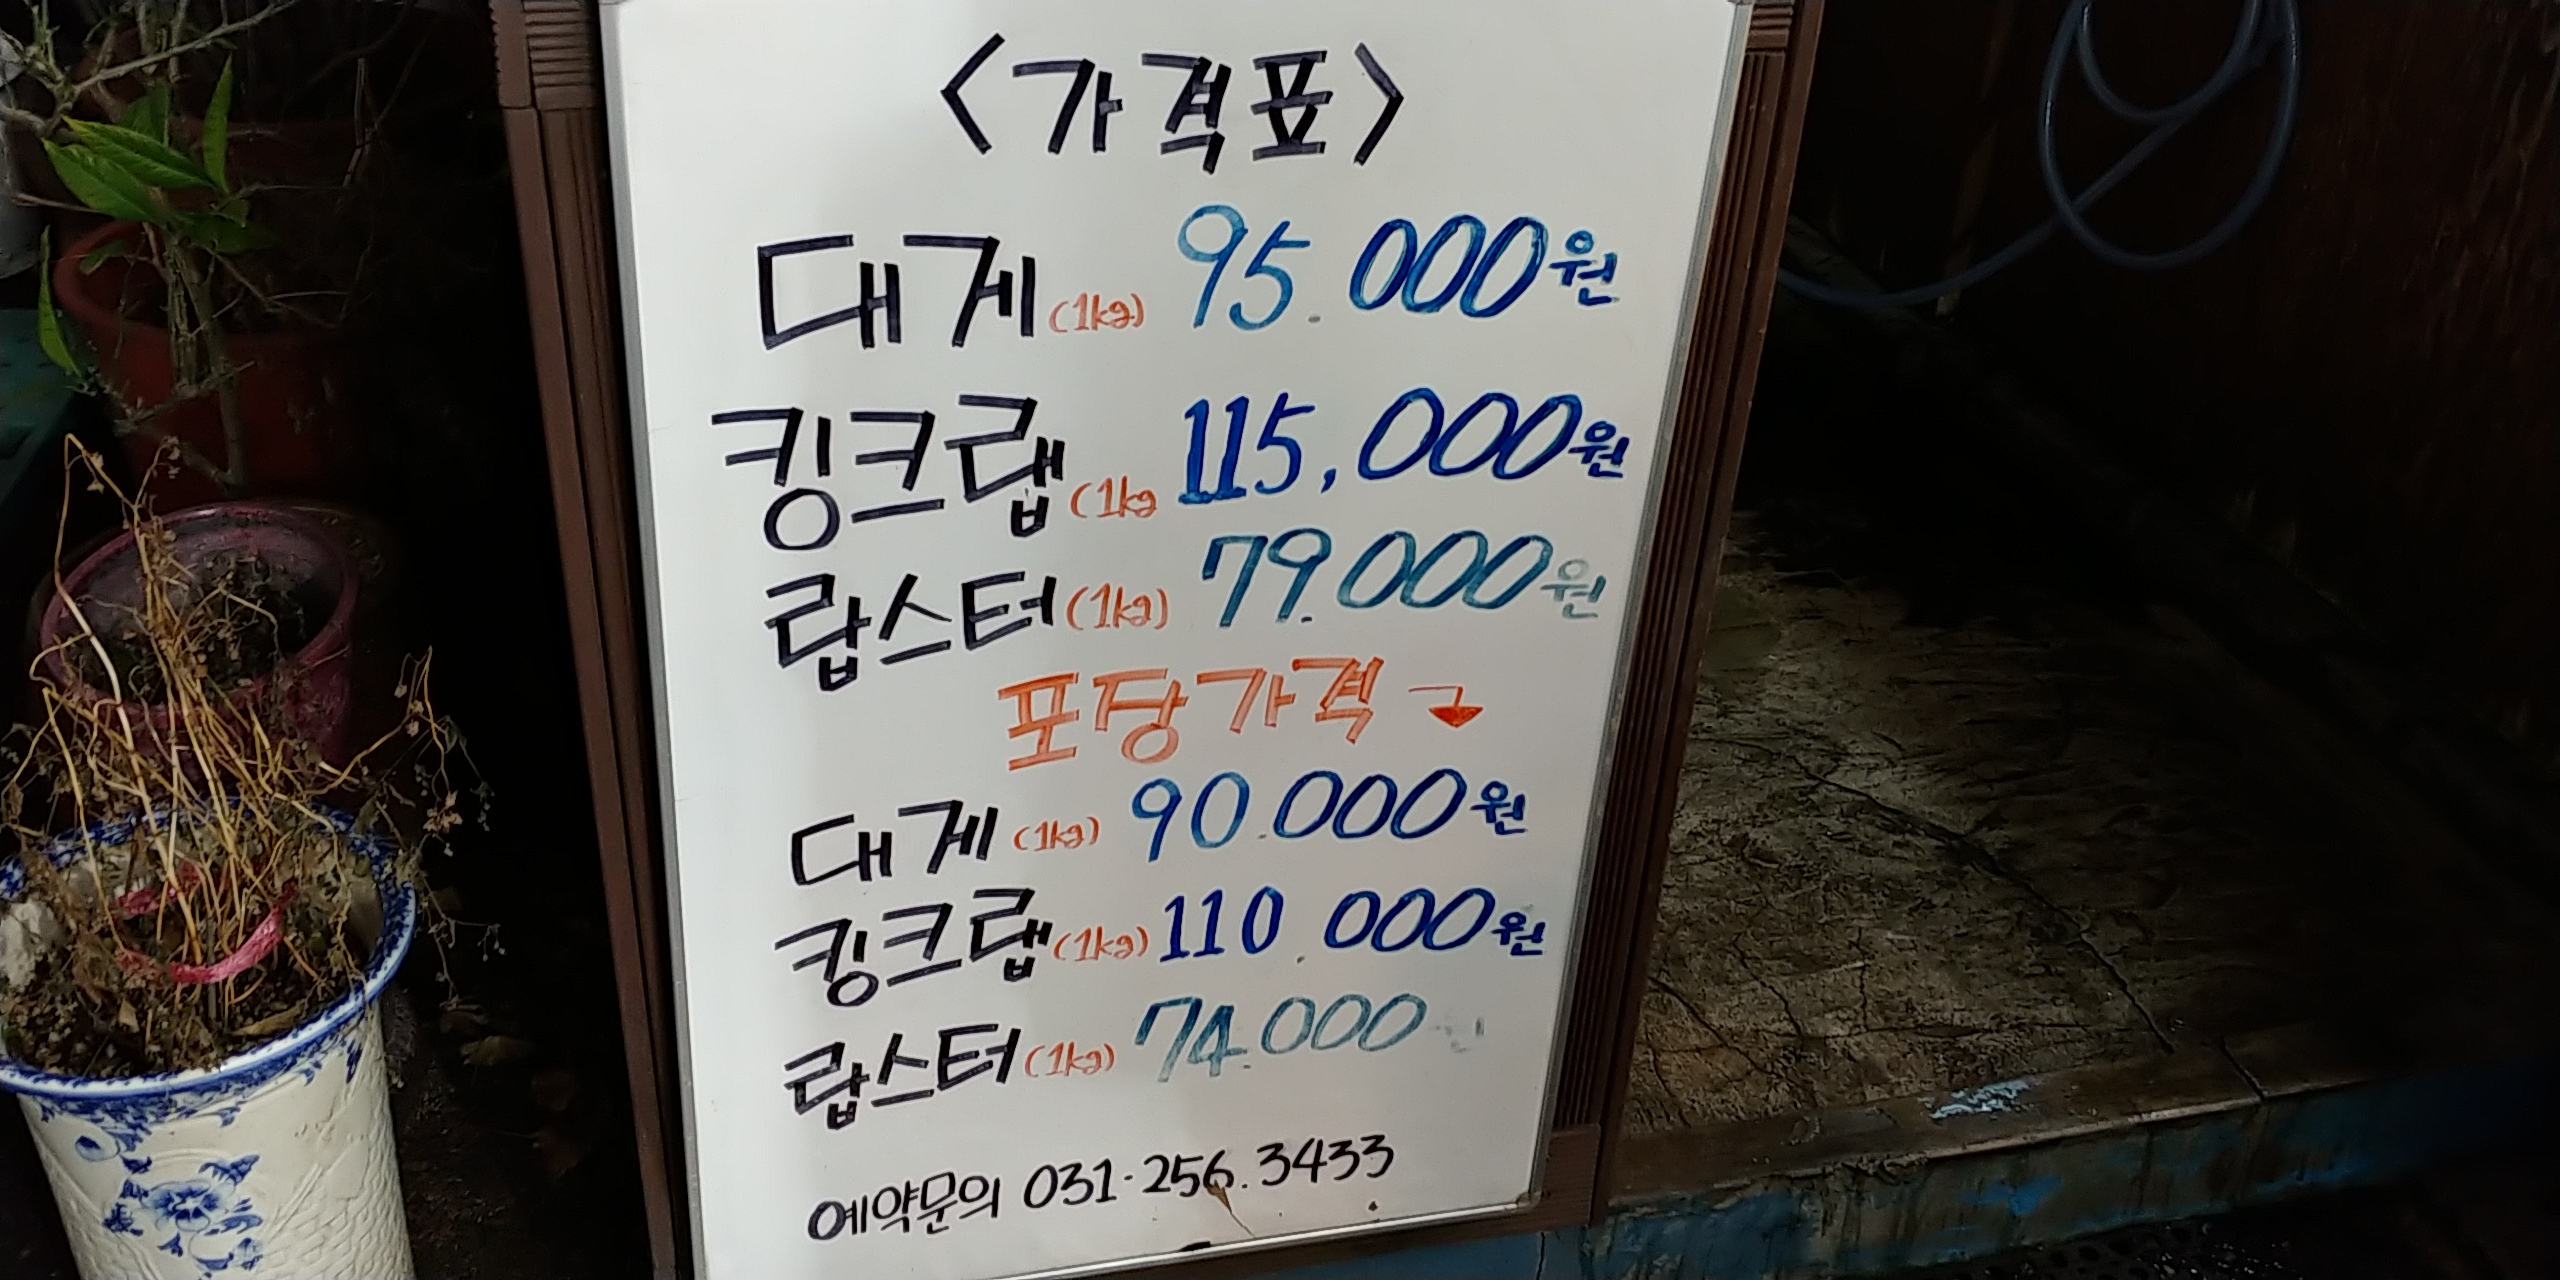 <가격표>
대게(1kg) 95.000원
킹크랩(1kg 115,000원
랍스터(1kg) 79.000원
포장가격
대게(1kg) 90.000원
킹크랩(1kg) 110.000원
랍스터(1kg) 74.000원
예약문의 031·256.3433